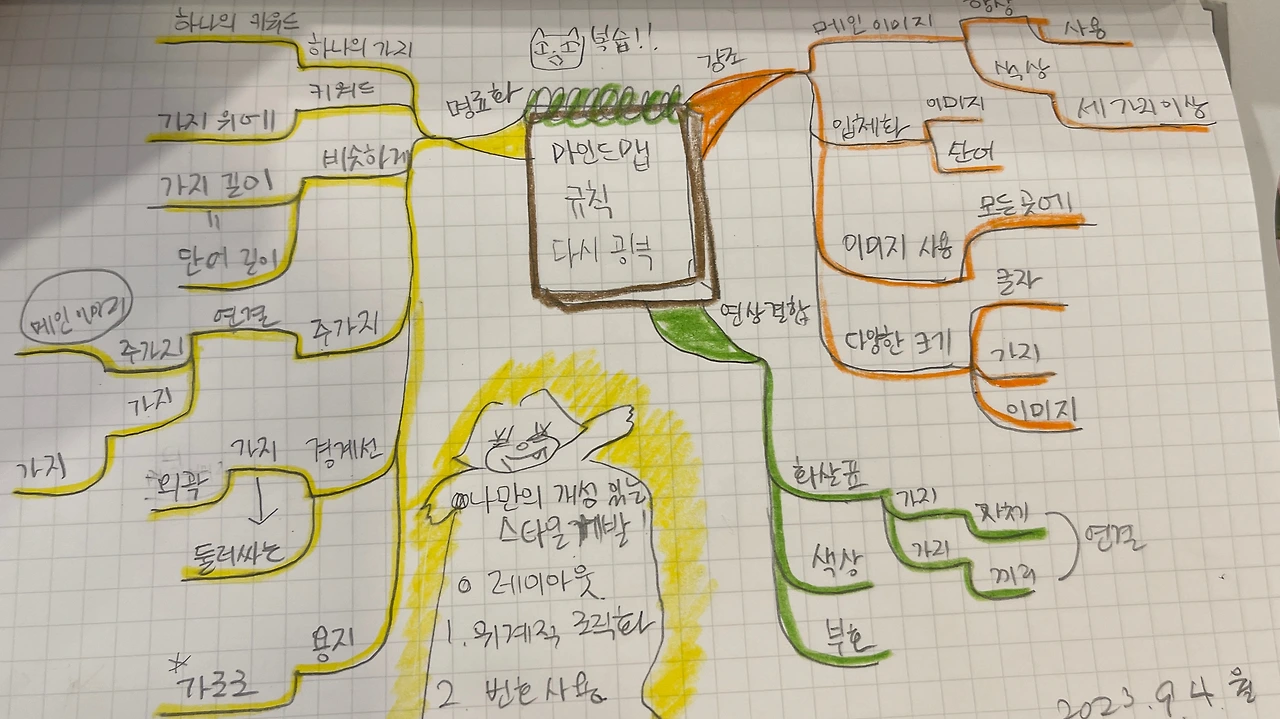 복습!!
마인드맵
규칙
다시 공부
명료화
하나의 가지
하나의 키워드
키워드
가지 위에
비슷하게
가지 길이
=
단어 길이
주가지
연결
주가지
메인이미지
가지
가지
경계선
가지
외곽
둘러싸는
용지
*가로로
강조
메인 이미지
항상
사용
색상
세 가지 이상
입체화
이미지
단어
이미지 사용
모든 곳에
다양한 크기
글자
가지
이미지
연상결합
화살표
가지
자체
가지
끼리
연결
색상
부호
나만의 개성 있는
스타일 개발!
0 레이아웃
1. 위계적 조직화
2 번호 사용
2023. 9. 4. 월